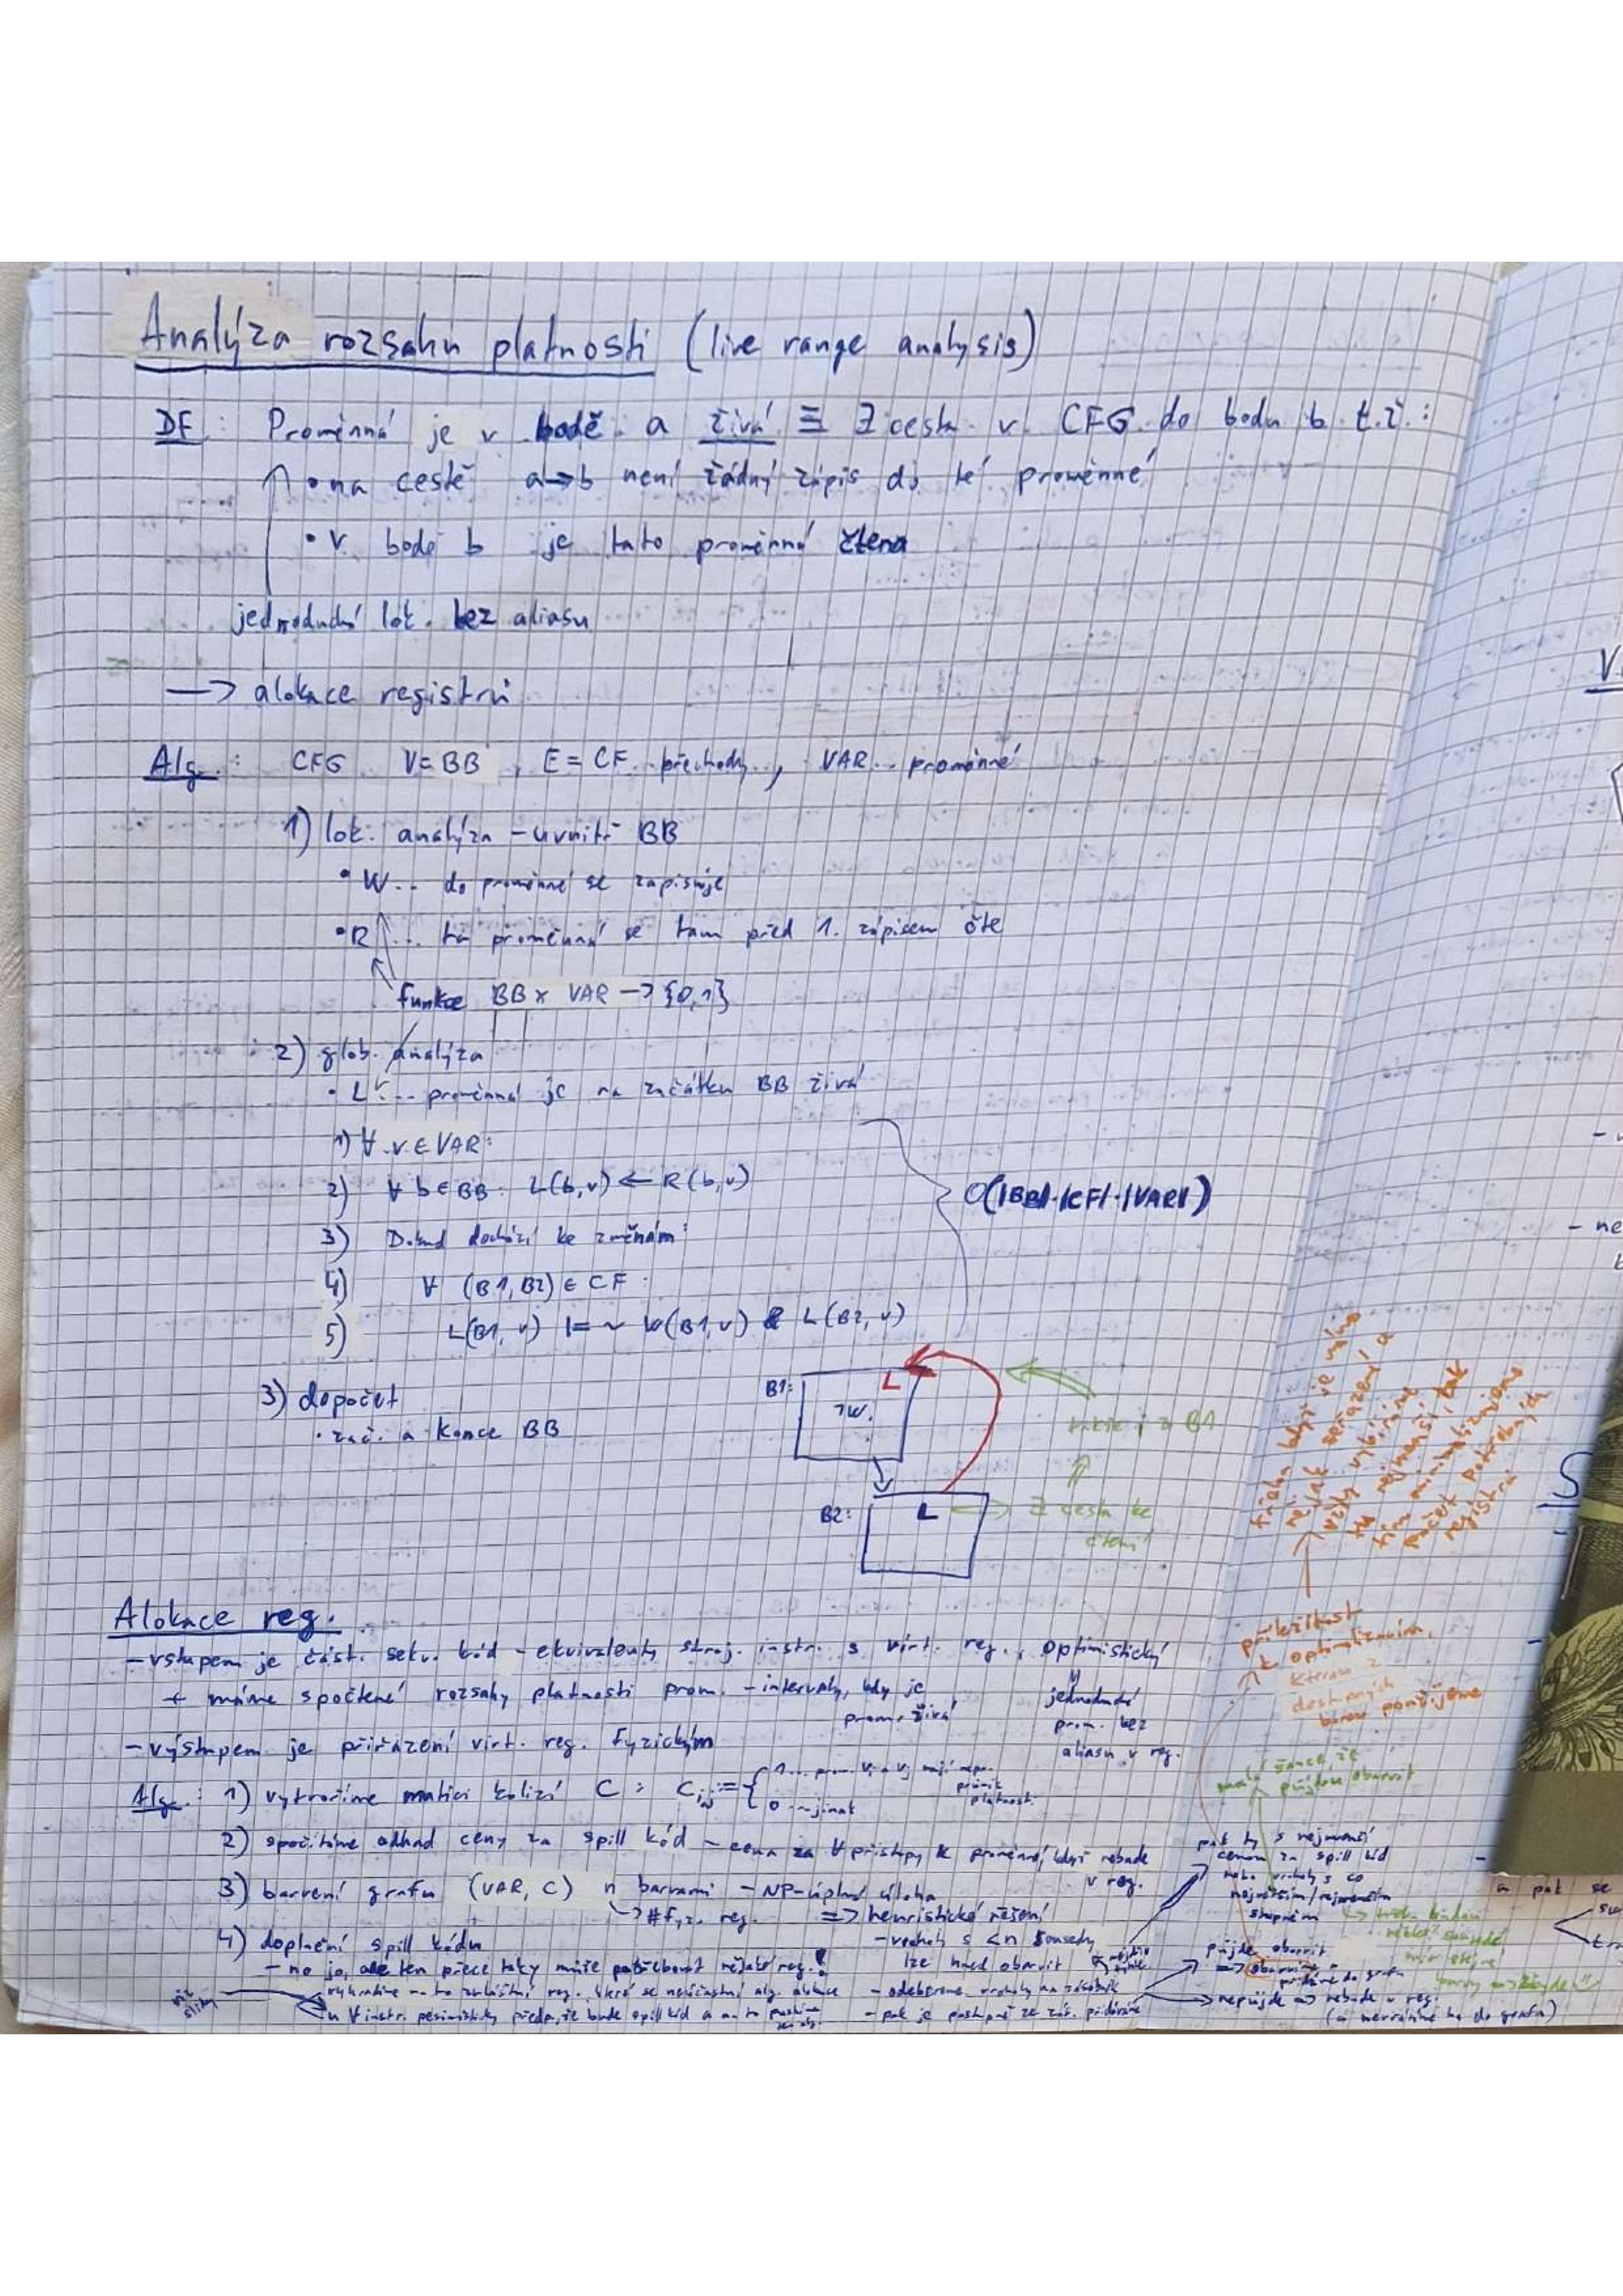 Analýza rozsahu platnosti (live range analysis)
DF: Proměnná je v bodě a živá ≡ ∃ cesta v CFG do bodu b t.ž.:
• na cestě a→b není žádný zápis do té proměnné
• v bodě b je tato proměnná čtena
jednoduchá lok. bez aliasu
→ alokace registrů
Alg.: CFG V=BB, E=CF přechody, VAR.. proměnné
1) lok. analýza - uvnitř BB
• W... do proměnné se zapisuje
• R... ta proměnná se tam před 1. zápisem čte
funkce BB x VAR → {0,1}
2) glob. analýza
• L... proměnná je na začátku BB živá
1) ∀ v ∈ VAR:
2) ∀ b ∈ BB: L(b,v) ← R(b,v)
3) Dokud dochází ke změnám:
4) ∀ (B1,B2) ∈ CF:
5) L(B1,v) |= ~ W(B1,v) & L(B2,v)
O(|BB|·|CF|·|VAR|)
3) dopočet
• zač. a konce BB
B1:
L
¬W.
takže i z B1
B2:
L
∃ cesta ke
čtení
Alokace reg.
- vstupem je část. sekv. kód - ekvivalenty stroj. instr. s virt. reg., optimisticky
+ máme spočtené rozsahy platnosti prom. - intervaly, kdy je
prom. živá
jednoduché
prom. bez
aliasu v reg.
- výstupem je přiřazení virt. reg. fyzickým
Alg.: 1) vytvoříme matici kolizí C : Cij := { 1... prom. Vi a Vj mají nepr.
průnik
platnosti
0 ... jinak
2) spočítáme odhad ceny za spill kód - cena za ∀ přístupy k proměnné, když nebude
v reg.
3) barvení grafu (VAR, C) n barvami - NP-úplná úloha
→ # fyz. reg. => heuristické řešení
- vrcholy s <n sousedy
lze hned obarvit
- odebereme vrcholy na zásobník
- pak je postupně ze zás. přidáváme
4) doplnění spill kódu
- no jo, ale ten přece taky může potřebovat nějaké reg.!
vyhradíme na to zvláštní reg. které se neúčastní alg. alokace
u ∀ instr. pesimisticky předp., že bude spill kód a na to
viz
slidy
pak ty s nejmenší
cenou za spill kód
nebo vrcholy s co
největším/nejmenším
stupněm
půjde obarvit
=> obarvíme a
přidáme do grafu
nepůjde => nebude v reg.
(a nevrátíme ho do grafu)
malá šance, že
půjdou obarvit
příležitost
k optimalizacím,
kterou z
dostupných
barev použijeme
registrů
a pak se